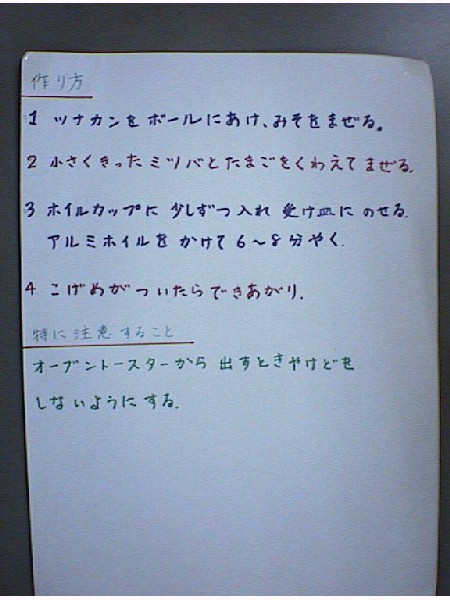 作り方
1 ツナカンをボールにあけ、みそをまぜる。
2 小さくきったミツバとたまごをくわえてまぜる.
3 ホイルカップに少しずつ入れ受け皿にのせる.
アルミホイルをかけて6〜8分やく.
4 こげめがついたらできあがり.
特に注意すること
オーブントースターから出すときやけどを
しないようにする.